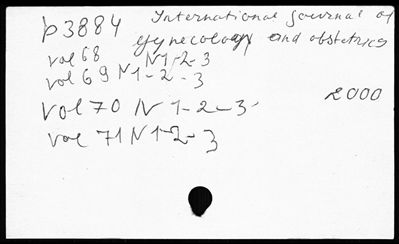 p3884 International journal of
gynecology and obstetrics
vol 68 N1-2-3
vol 69 N1-2-3
vol 70 N 1-2-3
2000
vol 71 N1-2-3